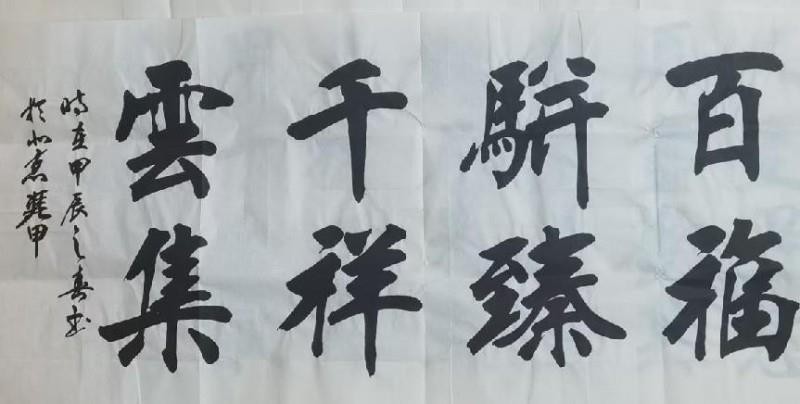 百福
駢臻
千祥
雲集
時在甲辰之春書
於北京 甲